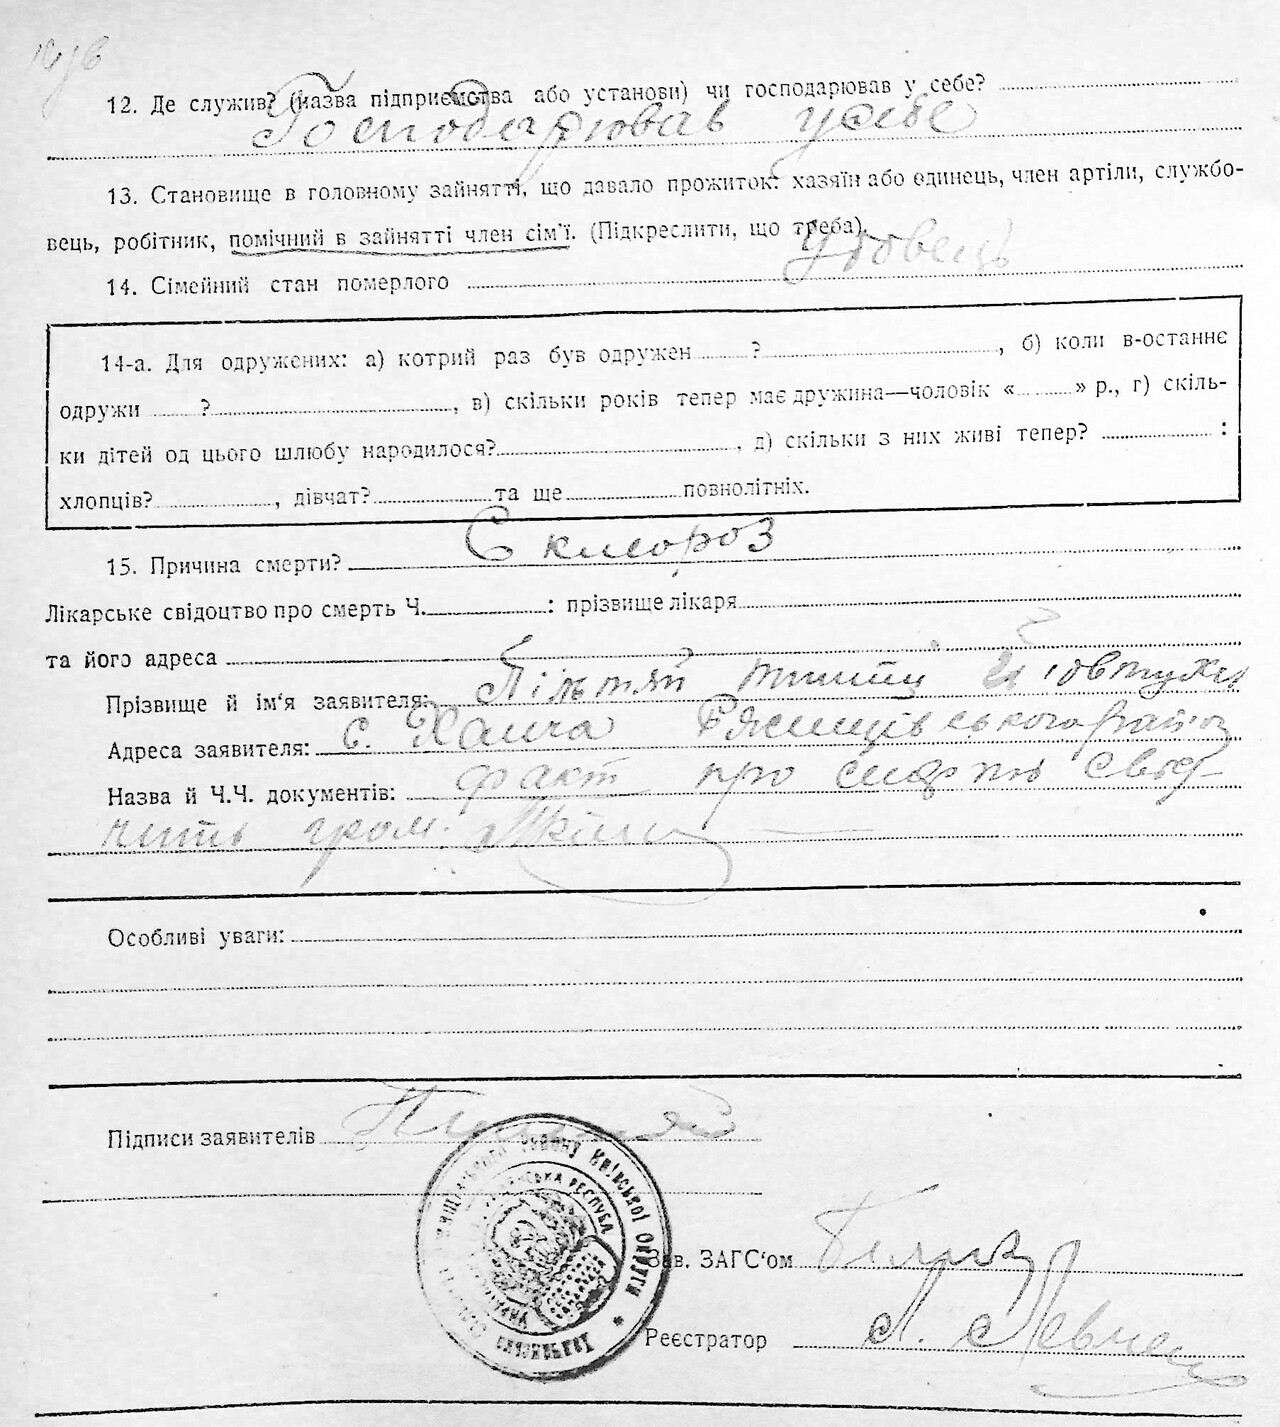 12. Де служив? (назва підприємства або установи) чи господарював у себе?
Господарював у себе
13. Становище в головному зайнятті, що давало прожиток: хазяїн або одинець, член артіли, службо-
вець, робітник, помічний в зайнятті член сім'ї. (Підкреслити, що треба).
14. Сімейний стан померлого удовець
14-а. Для одружених: а) котрий раз був одружен ?, б) коли в-останнє
одружи ?, в) скільки років тепер має дружина—чоловік « » р., г) скіль-
ки дітей од цього шлюбу народилося?, д) скільки з них живі тепер? :
хлопців?, дівчат? та ще повнолітніх.
15. Причина смерти? Склороз
Лікарське свідоцтво про смерть Ч. : прізвище лікаря
та його адреса
Прізвище й ім'я заявителя:
Адреса заявителя: с.
Назва й Ч.Ч. документів: факт про смерть свід-
чить гром.
Особливі уваги:
Підписи заявителів
району Київської Округи
Зав. ЗАГС'ом
Реєстратор